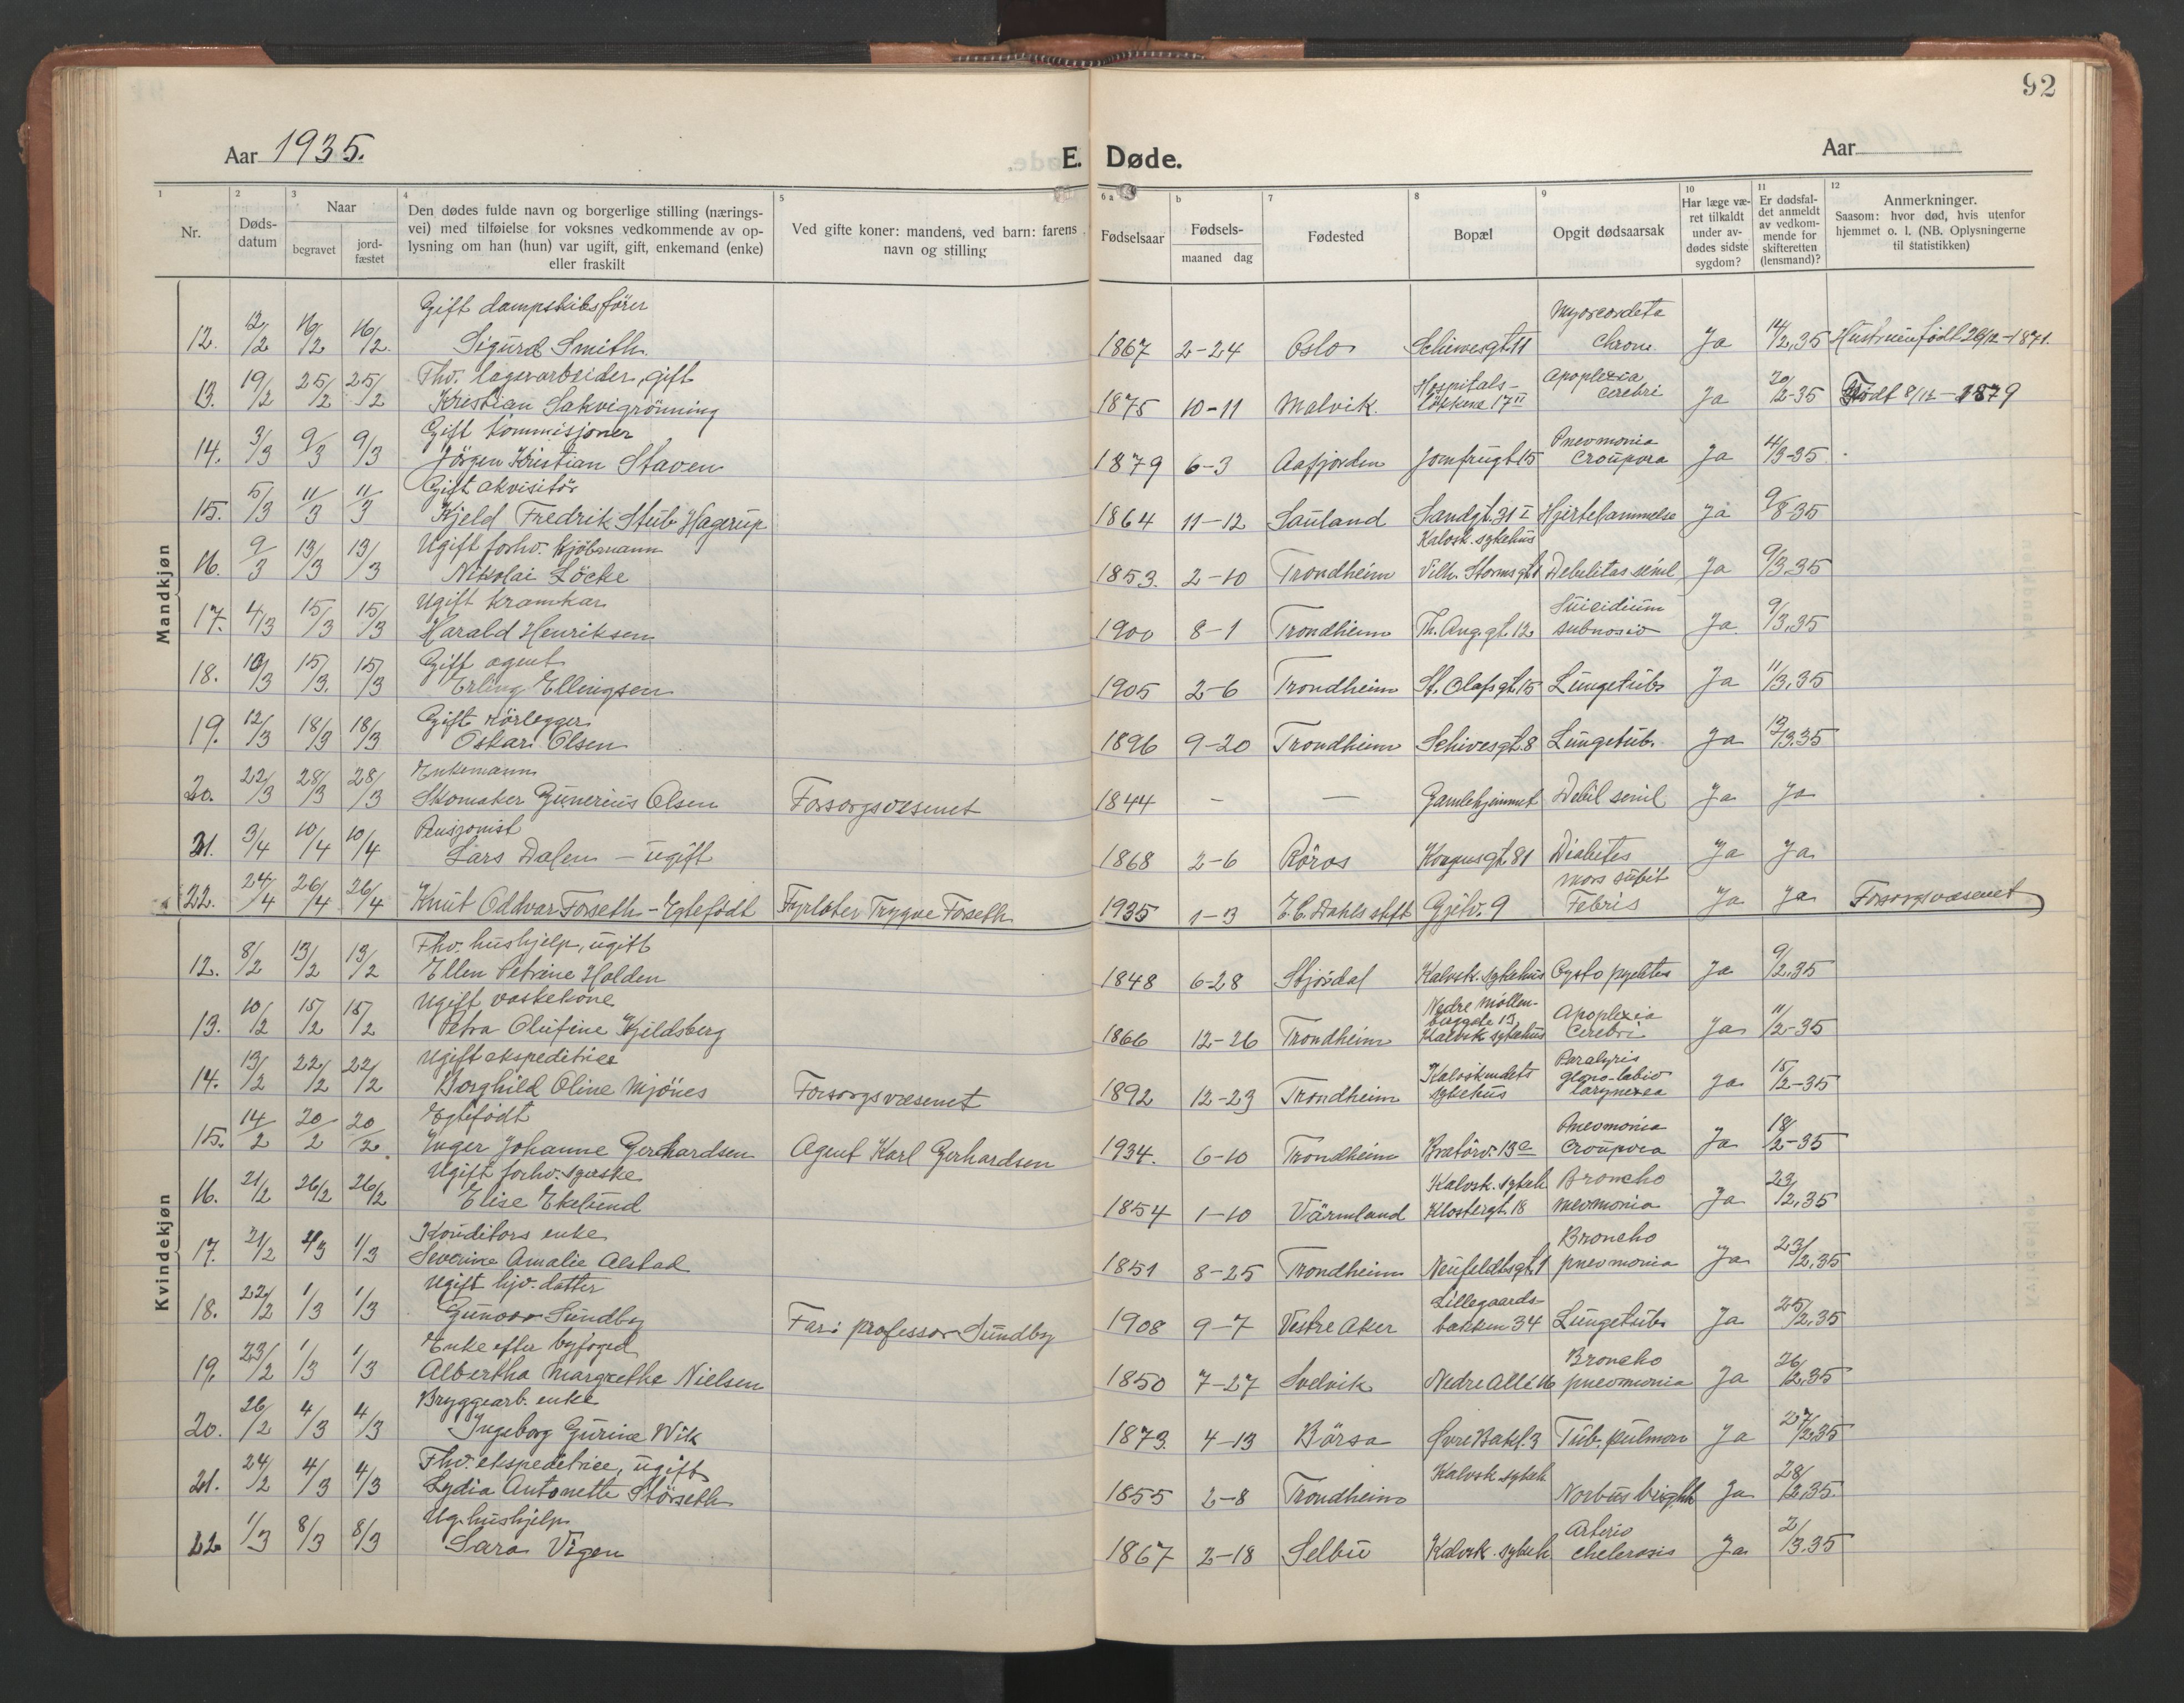 92
Aar 1935.
E. Døde.
Aar
1 2 3 4 5 6 a b 7 8 9 10 11 12
Nr.
Døds-datum
Naar
begravet
jord-fæstet
Den dødes fulde navn og borgerlige stilling (nærings-
vei) med tilføielse for voksnes vedkommende av op-
lysning om han (hun) var ugift, gift, enkemand (enke)
eller fraskilt
Ved gifte koner: mandens, ved barn: farens
navn og stilling
Fødselsaar
Fødsels-
maaned dag
Fødested
Bopæl
Opgit dødsaarsak
Har læge væ-
ret tilkaldt
under av-
dødes sidste
sygdom?
Er dødsfal-
det anmeldt
av vedkom-
mende for
skifteretten
(lensmand)?
Anmerkninger.
Saasom: hvor død, hvis utenfor
hjemmet o. l. (NB. Oplysningerne
til statistikken)
Mandkjøn
Gift dampskibsfører
12. 12/2 16/2 16/2. Sigurd Smith 1867 2-24 Oslo Schivesgt. 11 Myocordeta chron. Ja 14/2.35 Hustruen født 26/12-1871.
Fhv. lagerarbeider, gift
13. 19/2 25/2 25/2 Kristian Sakvigrønning 1875 10-11 Malvik. Hospitals-løkkene 17 II Apoplexia cerebri Ja 20/2-35 Født 8/12-1879
Gift kommisjonær
14. 3/3 9/3 9/3 Jörgen Kristian Staven 1879 6-3 Aafjorden Jomfrugt 15 Pnevmonia croupora Ja 4/3-35.
Gift akvisitör
15. 5/3 11/3 11/3 Kjeld Fredrik Stub Hagerup 1864 11-12 Sauland Sandgt. 31 I Hjertelammelse Ja 9/3-35
Ugift forhv. kjöbmann
16. 9/3 13/3 13/3 Nikolai Löcke 1853. 2-10 Trondheim Kalvsk. sykehus Vilh. Stormsgt. 1 Debilitas senil Ja 9/3.35
Ugift kramkar
17. 4/3 15/3 15/3 Harald Henriksen 1900 8-1 Trondheim Th. Ang. gt. 12 Suicidium Ja 9/3.35
Gift agent
18. 10/3 15/3. 15/3 Erling Ellingsen 1905 2-6 Trondheim St. Olafsgt. 15 Lungetub. Ja 11/3.35
Gift rörlegger
19. 12/3 18/3 18/3 Oskar Olsen 1896 9-20 Trondheim Schivesgt. 8 Lungetub. Ja 13/3.35
Enkemann
20. 22/3 28/3 28/3 Skomaker Gunerius Olsen Forsorgsvæsenet 1844 - - Gamlehjemmet Debil senil Ja Ja
Pensjonist
21. 3/4 10/4 10/4 Lars Dalen - ugift 1868 2-6 Röros Kongensgt. 81 Diabetes Ja Ja
22. 24/4 26/4 26/4 Knut Oddvar Forseth - Egtefødt Fyrbøter Trygve Forseth 1935 1-3 E.C. Dahls stift Gjelv. 9 mors subit Febris Ja Ja Forsorgsvæsenet
Kvindekjøn
Fhv. hushjelp, ugift
12. 8/2 13/2 13/2 Ellen Petrine Holden 1848 6-28 Stjördal Kalvsk. sykehus Cysto pyelites Ja 9/2.35
Ugift vaskekone
13. 10/2 15/2 15/2 Petra Olufine Kjeldsberg 1866 12-26 Trondheim Nedre Möllen-berggate 13, Kalvsk sykehus Apoplexia Cerebri Ja 11/2-35
Ugift ekspeditrice
14. 13/2 22/2 22/2 Borghild Oline Mjönes Forsorgsvæsenet 1892 12-23 Trondheim Kalvskindets sykehus Paralyris labio laryngea Ja 15/2-35
Egtefödt
15. 14/2 20/2 20/2. Inger Johanne Gerhardsen Agent Karl Gerhardsen 1934. 6-10 Trondheim Bratörv. 13 c Pnevmonia croupora Ja 18/2-35
Ugift forhv. syerske
16. 21/2 26/2 26/2 Elise Ekelund 1854 1-10 Värmland Kalvsk. sykeh Klostergt. 18 Broncho nevmonia Ja 23/2.35
Konditors enke
17. 21/2 1/3 1/3 Severine Amalie Alstad 1851 8-25 Trondheim Neufeldtsgt. 1 Broncho pnevmonia Ja 23/2.35
Ugift hjv. datter
18. 22/2 1/3 1/3 Gunvor Sundby Far: professor Sundby 1908 9-7 Vestre Aker Lillegaards-bakken 34 Lungetub. Ja 25/2.35
Enke efter byfoged
19. 23/2 1/3 1/3 Albertha Margrethe Nielsen 1850 7-27 Svelvik Nedre Allé 16 Broncho pnevmonia Ja 26/2.35
Bryggearb. enke
20. 26/2 4/3 4/3 Ingeborg Gurine Wik 1873. 4-13 Börsa Øvre Bakl. 3 Tub. pulmon Ja 27/2.35
Fhv. ekspeditrice, ugift
21. 24/2 4/3 4/3 Lydia Antonette Störseth 1855 2-8 Trondheim Kalvsk. sykeh Norbus brightk Ja 28/2.35.
Ug. hushjelp
22 1/3 8/3 8/3 Sara Vigen 1867 2-18 Selbu Kalvsk. sykeh Arterio chelerosis Ja 2/3.35